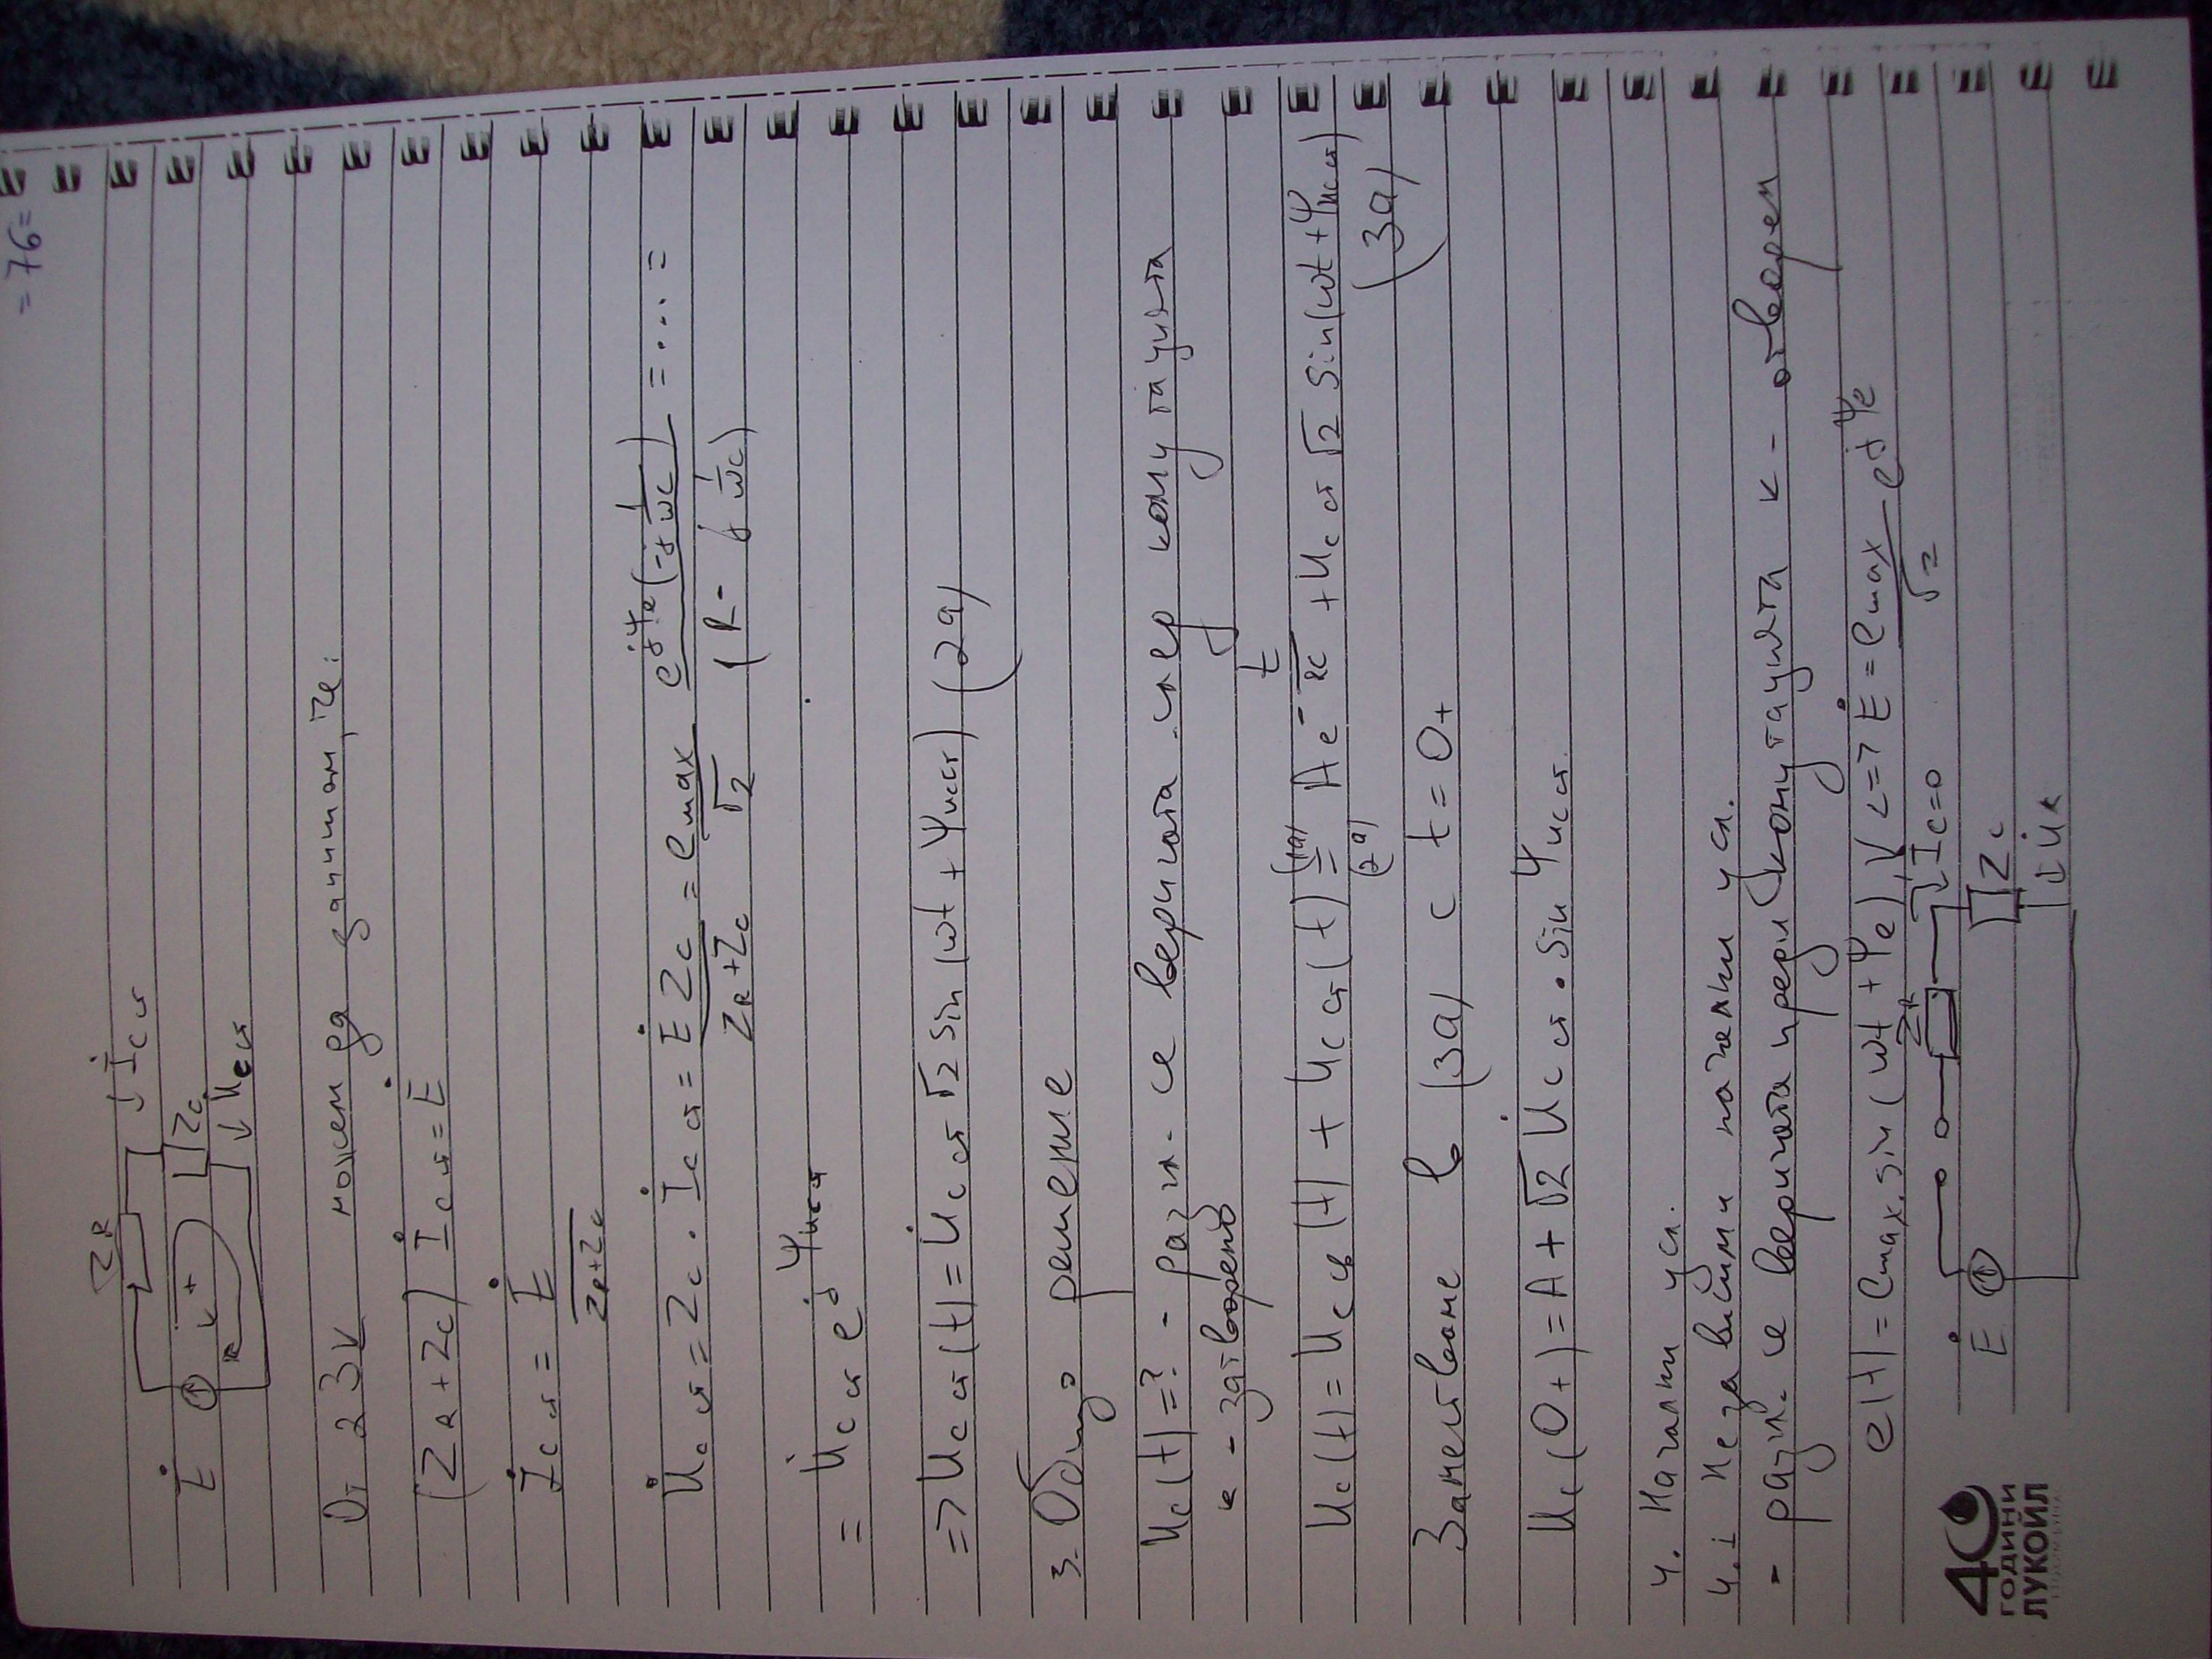 = 76 =
Z_R
İ_Cст
Ė
Z_C
U̇_Cст
От 2ЗК можем да запишем, че:
(Z_R + Z_C) İ_Cст = Ė
İ_Cст = Ė / (Z_R + Z_C)
U̇_Cст = Z_C . İ_Cст = Ė Z_C / (Z_R + Z_C) = e_max / √2 e^{jΨe} (-j 1/ωC) / (R - j 1/ωC) = .... =
= U_Cст e^{jΨ_uCст}
=> U_Cст(t) = U̇_Cст √2 sin(ωt + Ψ_uCст) (2а)
3. Общо решение
U_C(t) = ? - разгл. се веригата след комутацията
к - затворено
U_C(t) = U_Cсв(t) + U_Cст(t) = (1а) (2а) A e^{-t/RC} + U_Cст √2 sin(ωt + Ψ_uCст)
(3а)
Заместваме в (3а) с t = 0+
U_C(0+) = A + √2 U̇_Cст . sin Ψ_uCст
4. Начални усл.
4.1 Независими начални усл.
- разгл. се веригата преди комутацията к - отворен
e(t) = e_max . sin(ωt + Ψe), V <=> Ė = e_max / √2 e^{jΨe}
Z_R
İ_C = 0
Ė
Z_C
U̇_к
40
ГОДИНИ
ЛУКОЙЛ